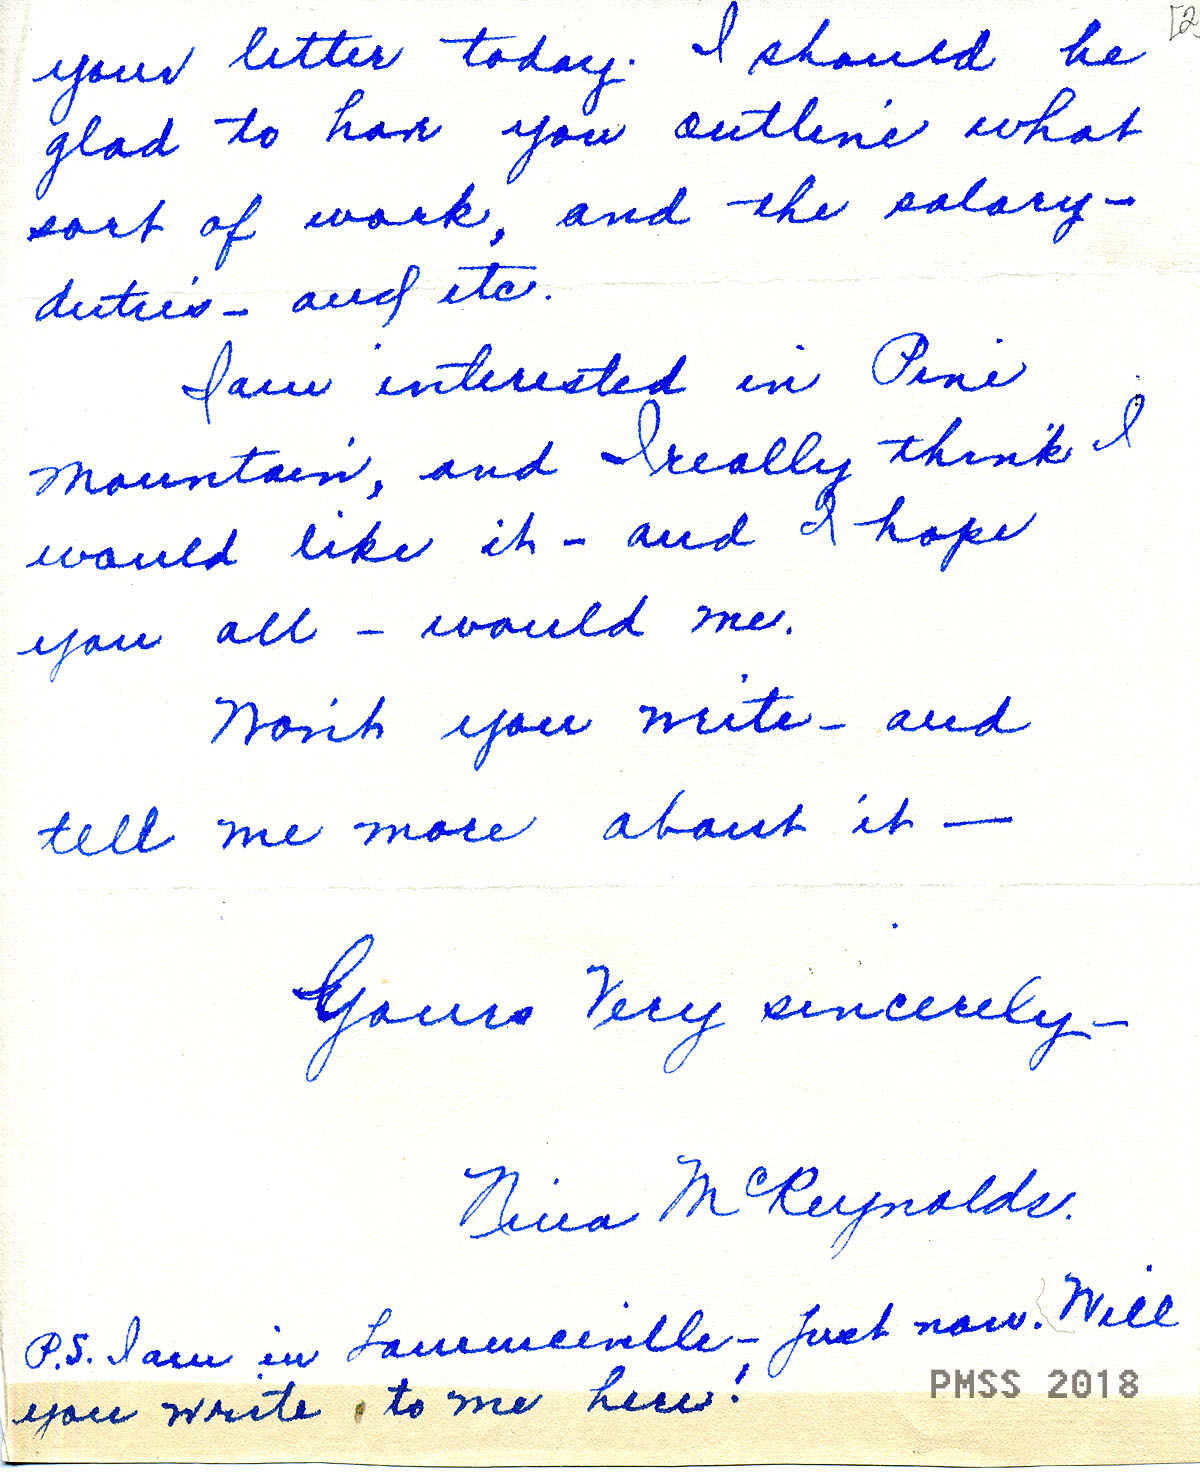 [2
your letter today. I should be
glad to have you outline what
sort of work, and the salary—
duties— and etc.
I am interested in Pine
Mountain, and I really think I
would like it — and I hope
you all — would me.
Won't you write — and
tell me more about it —
Yours Very sincerely —
Nina McReynolds.
P.S. I am in Lawrenceville — just now. Will
you write to me here!
PMSS 2018